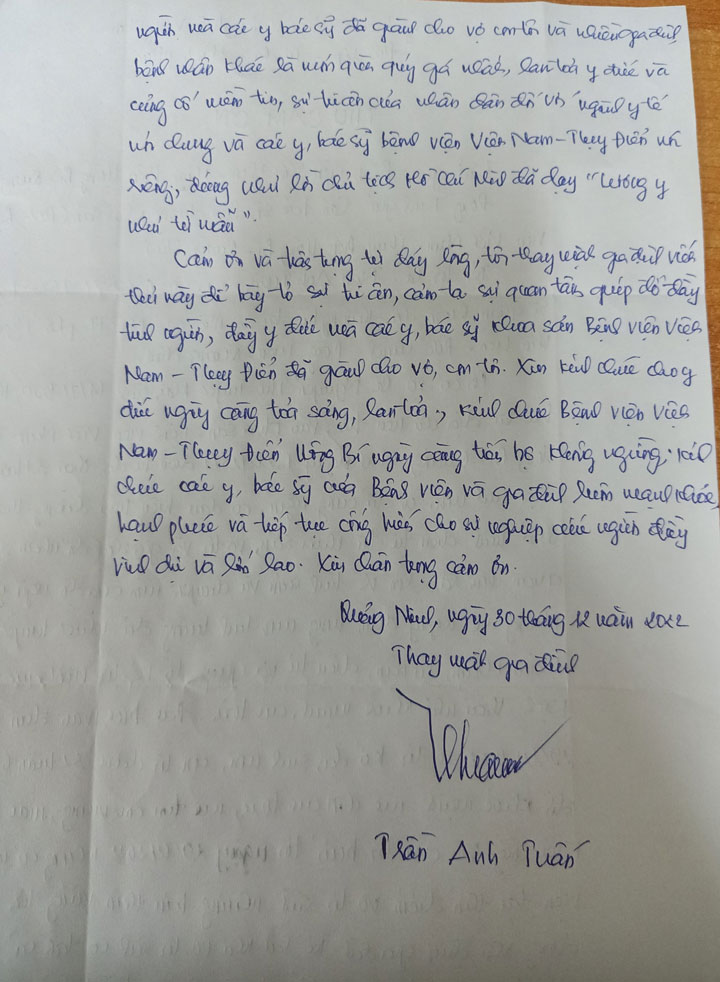 người mà các y bác sỹ đã giành cho vợ con tôi và nhiều gia đình
bệnh nhân khác là món quà quý giá nhất, lan toả y đức và
củng cố niềm tin, sự tri ân của nhân dân đối với ngành y tế
nói chung và các y, bác sỹ bệnh viện Việt Nam - Thụy Điển nói
riêng, đúng như lời chủ tịch Hồ Chí Minh đã dạy "Lương y
như từ mẫu".
Cảm ơn và trân trọng từ đáy lòng, tôi thay mặt gia đình viết
thư này để bày tỏ sự tri ân, cảm tạ sự quan tâm giúp đỡ đầy
tình người, đầy y đức mà các y, bác sỹ khoa sản Bệnh viện Việt
Nam - Thụy Điển đã giành cho vợ, con tôi. Xin kính chúc cho y
đức ngày càng toả sáng, lan toả., kính chúc Bệnh viện Việt
Nam - Thụy Điển Uông Bí ngày càng tiến bộ không ngừng. Kính
chúc các y, bác sỹ của Bệnh viện và gia đình luôn mạnh khỏe,
hạnh phúc và tiếp tục cống hiến cho sự nghiệp cứu người đầy
vinh dự và lớn lao. Xin chân trọng cảm ơn.
Quảng Ninh, ngày 30 tháng 12 năm 2022
Thay mặt gia đình
Trần Anh Tuấn